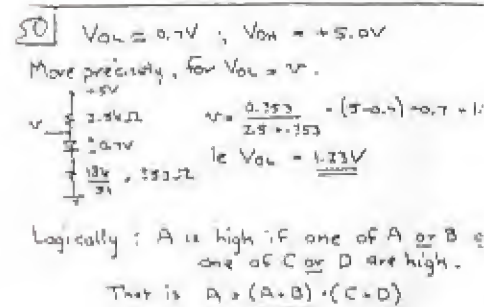 50 VOL = 0.7V ; VOH = +5.0V
More precisely, for VOL = v.
+5V
v
0.7V
v = 0.353 / 2.5 + .353 (5-0.7) +0.7
ie VOL = 1.23V
Logically : A is high if one of A or B
one of C or D are high.
That is A = (A+B) · (C+D)